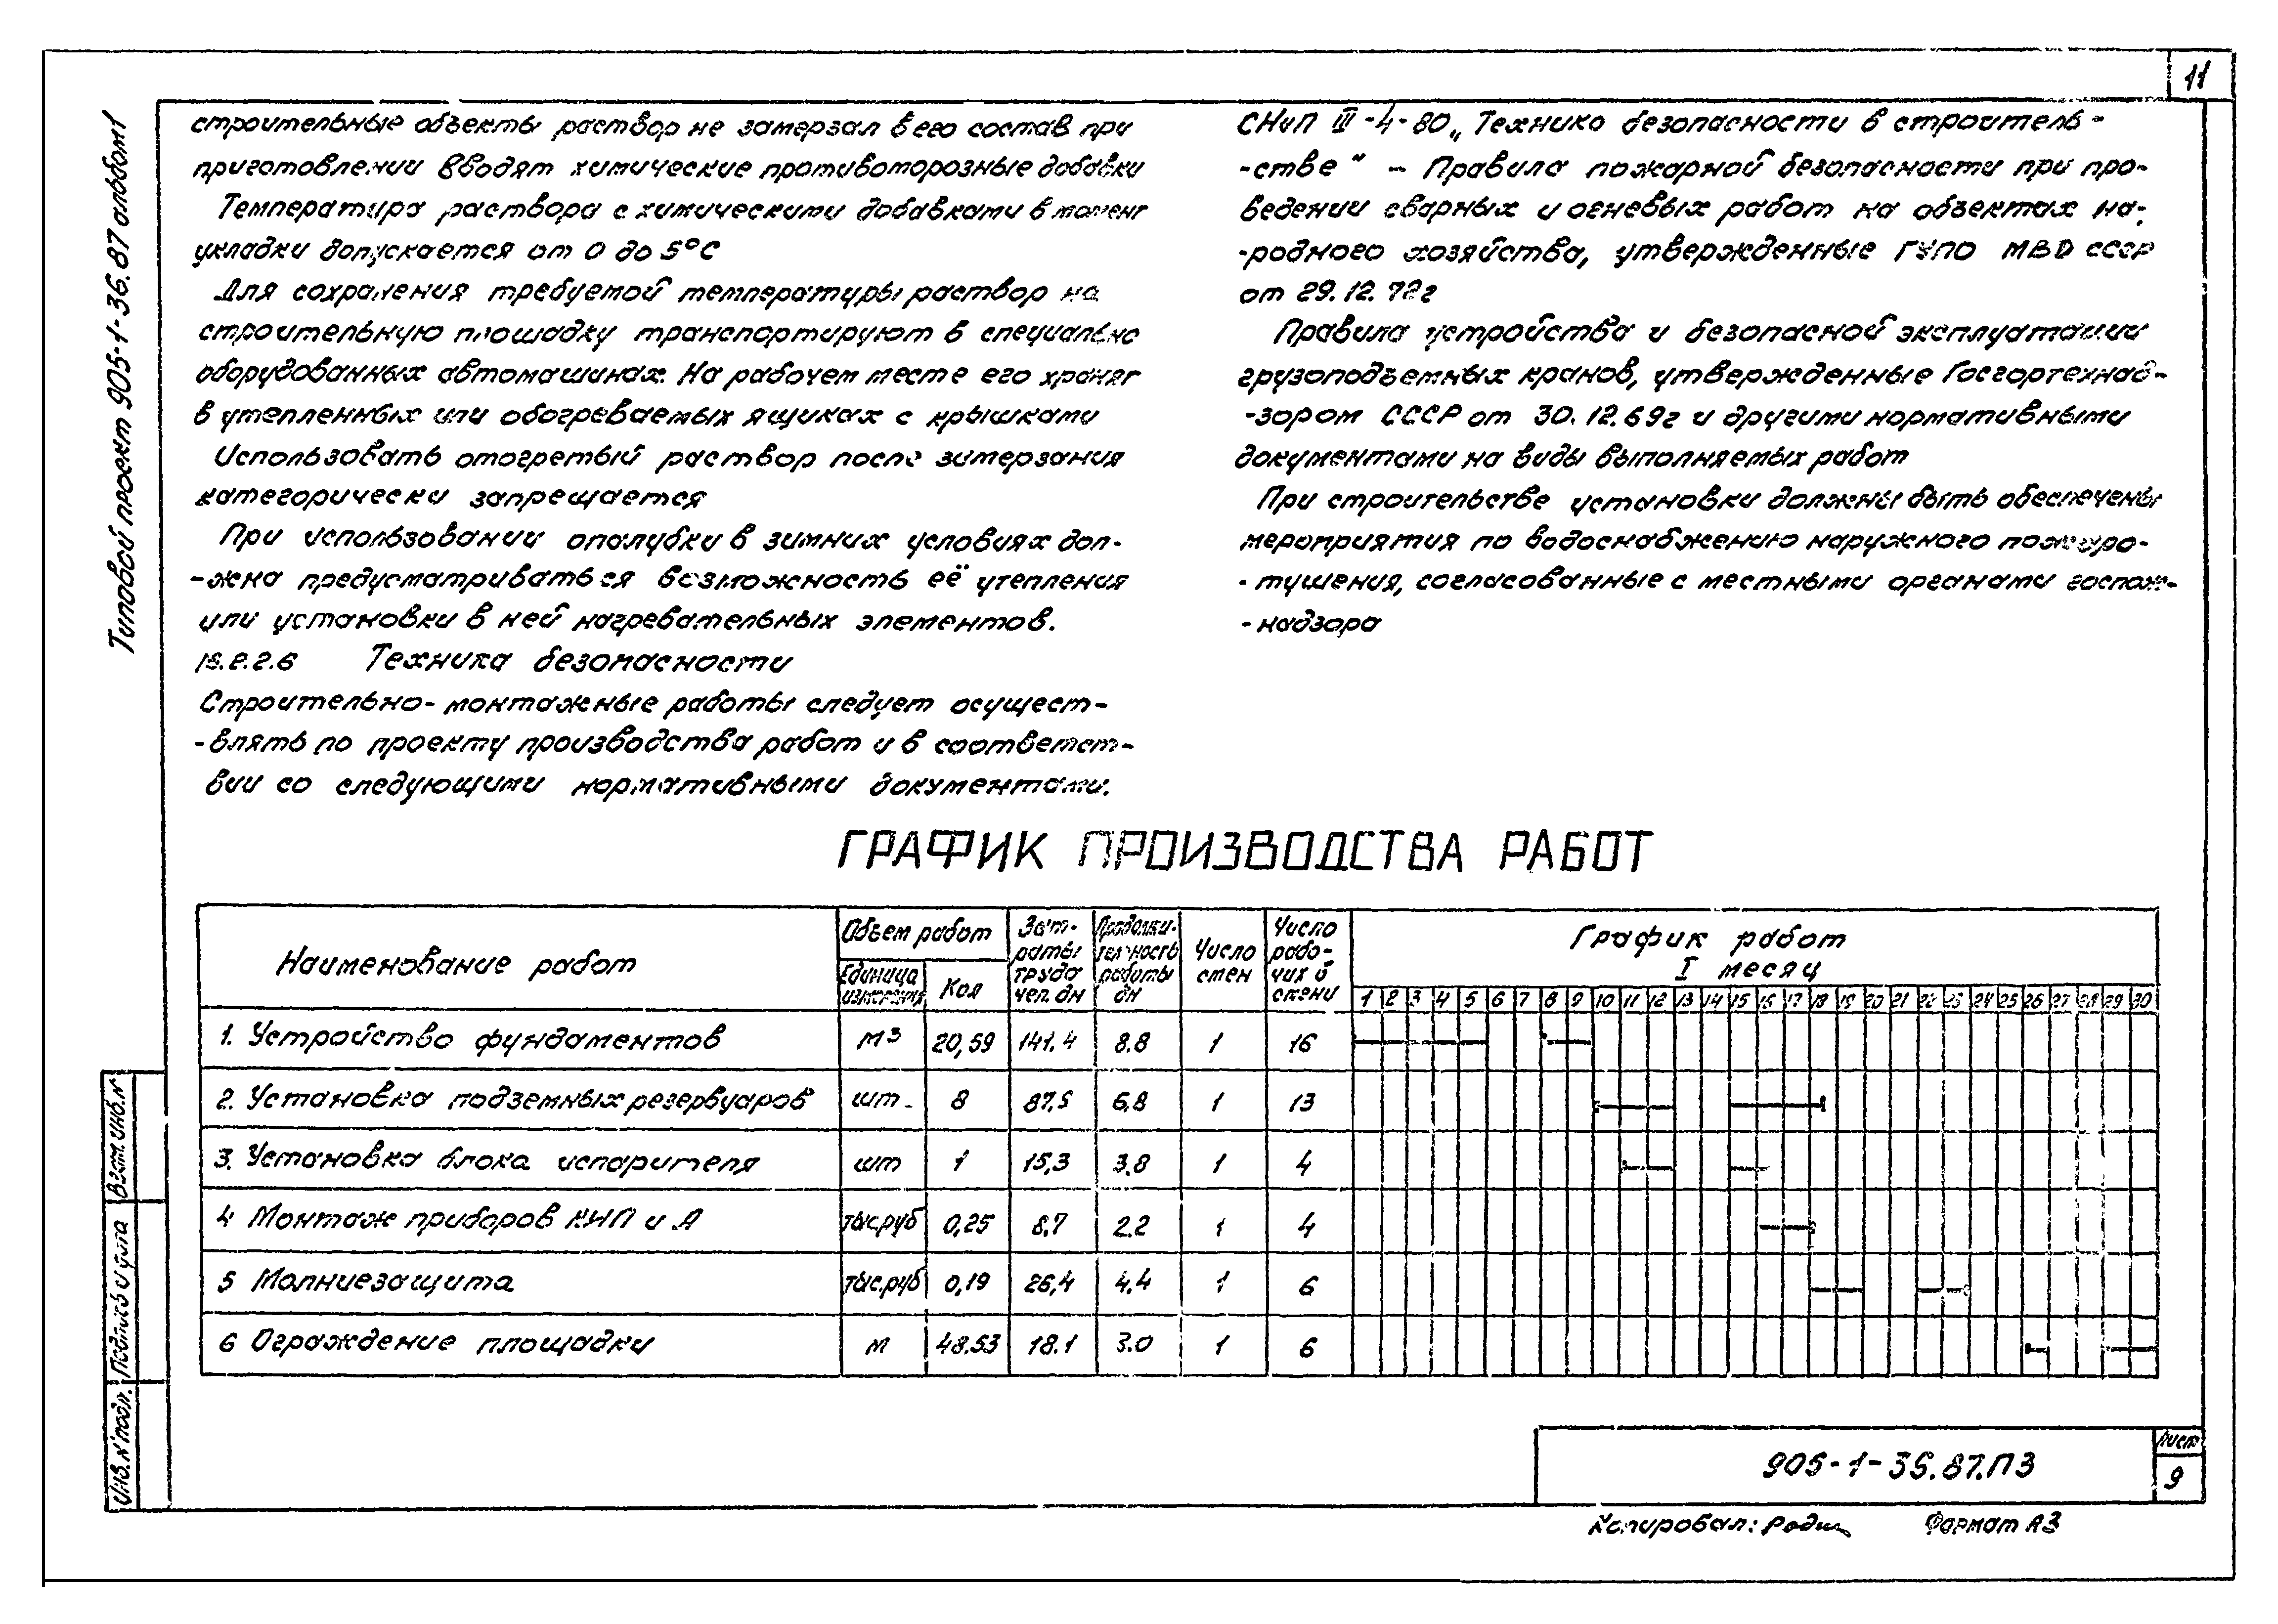 11
Типовой проект 905-1-36.87 альбом 1
строительные объекты раствор не замерзал в его состав при
приготовлении вводят химические противоморозные добавки
Температура раствора с химическими добавками в момент
укладки допускается от 0 до 5°С
Для сохранения требуемой температуры раствор на
строительную площадку транспортируют в специально
оборудованных автомашинах. На рабочем месте его хранят
в утепленных или обогреваемых ящиках с крышками
Использовать отогретый раствор после замерзания
категорически запрещается
При использовании опалубки в зимних условиях дол-
-жна предусматриваться возможность её утепления
или установки в ней нагревательных элементов.
15.2.2.6 Техника безопасности
Строительно-монтажные работы следует осущест-
-влять по проекту производства работ и в соответст-
вии со следующими нормативными документами.
СНиП III-4-80 „Техника безопасности в строитель-
-стве" - Правила пожарной безопасности при про-
ведении сварных и огневых работ на объектах на-
-родного хозяйства, утвержденные ГУПО МВД СССР
от 29.12.72г
Правила устройства и безопасной эксплуатации
грузоподъемных кранов, утвержденные Госгортехнад-
-зором СССР от 30.12.69г и другими нормативными
документами на виды выполняемых работ
При строительстве установки должны быть обеспечены
мероприятия по водоснабжению наружного пожаро-
-тушения, согласованные с местными органами госпож-
-надзора
ГРАФИК ПРОИЗВОДСТВА РАБОТ
Наименование работ
Объем работ
Единица измерения
Кол
Зат-
раты
труда
чел.дн
Продолжи-
тельность
работы
дн
Число
смен
Число
рабо-
чих в
смену
График работ
I месяц
1 2 3 4 5 6 7 8 9 10 11 12 13 14 15 16 17 18 19 20 21 22 23 24 25 26 27 28 29 30
1. Устройство фундаментов м³ 20,59 141.4 8.8 1 16
2. Установка подземных резервуаров шт. 8 87.5 6,8 1 13
3. Установка блока испарителя шт 1 15,3 3.8 1 4
4 Монтаж приборов КИП и А тыс.руб 0,25 8,7 2.2 1 4
5 Молниезащита тыс.руб 0,19 26,4 4.4 1 6
6 Ограждение площадки м 48.53 18.1 3.0 1 6
Взам.инв.N
Подпись и дата
Инв.N подл.
905-1-36.87.ПЗ
Лист
9
Копировал: Формат А3